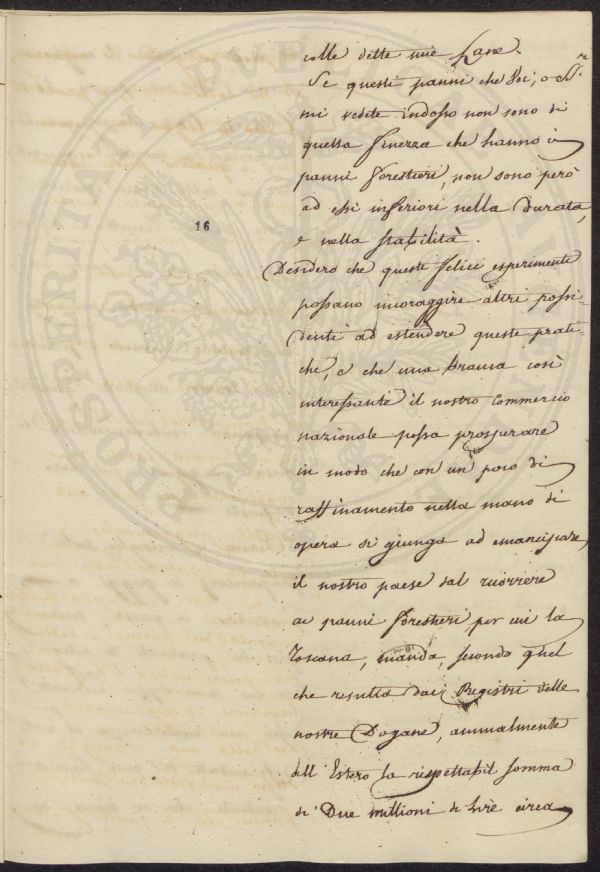 colle dette mie Lane.
Se questi panni che Voi, o SS.ri
mi vedete indosso non sono di
quella finezza che hanno i
panni forestieri, non sono però
ad essi inferiori nella durata,
16
e nella stabilità.
Desidero che questi felici esperimenti
possano incoraggire altri possi-
denti ad estendere queste prati-
che, e che una branca così
interessante il nostro Commercio
nazionale possa prosperare
in modo che con un poco di
raffinamento nella mano di
opera si giunga ad emancipare
il nostro paese dal ricorrere
ai panni forestieri per cui la
Toscana, manda, secondo quel
che resulta dai Registri delle
nostre Dogane, annualmente
all'Estero la rispettabil somma
di Due millioni di Lire circa
PROSPERITATI PUBL